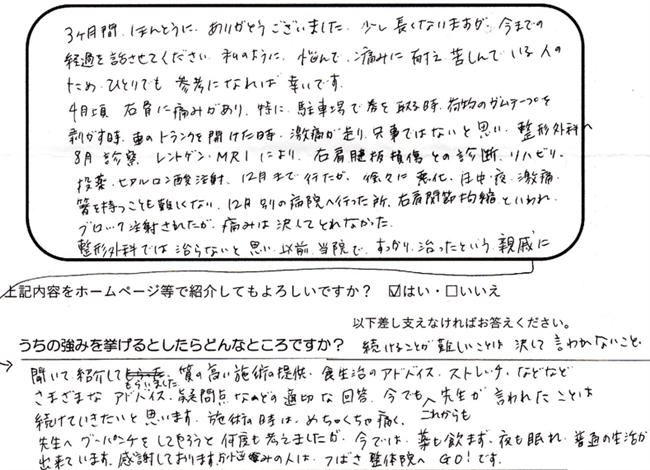 3ヶ月間、ほんとうに ありがとうございました。少し長くなりますが、今までの
経過を話させてください。私のように、悩んで、痛みに耐え苦しんでいる人の
ため、ひとりでも 参考になれば 幸いです。
4月頃 右肩に痛みがあり、特に、駐車場で券を取る時、荷物のガムテープを
剥がす時、車のトランクを開けた時、激痛が走り、只事ではないと思い、整形外科へ
8月 診察、レントゲン・MRIにより、右肩腱板損傷との診断、リハビリ、
投薬、ヒアルロン酸注射、12月まで行たが、徐々に悪化、日中・夜、激痛、
箸を持つことも難しくない、12月別の病院へ行った所、右肩関節拘縮といわれ、
ブロック注射されたが、痛みは決してとれなかった。
整形外科では治らないと思い、以前、当院で、すっかり治ったという親戚に
上記内容をホームページ等で紹介してもよろしいですか？ ☑はい・□いいえ
以下差し支えなければお答えください。
うちの強みを挙げるとしたらどんなところですか？ 続けることが難しいことは 決して言わないこと。
聞いて紹介してもらいました。質の高い施術の提供、食生活のアドバイス、ストレッチ、などなど
さまざまな アドバイス、疑問点などの適切な回答、今でも、先生が言われたことは
これからも
続けていきたいと思います。施術の時は、めちゃくちゃ痛く、
先生へ グーパンチをしてやろうと何度も考えましたが、今では、薬も飲まず、夜も眠れ、普通の生活が
出来ています。感謝しております。お悩みの人は、つばさ整体院へ GO！です。